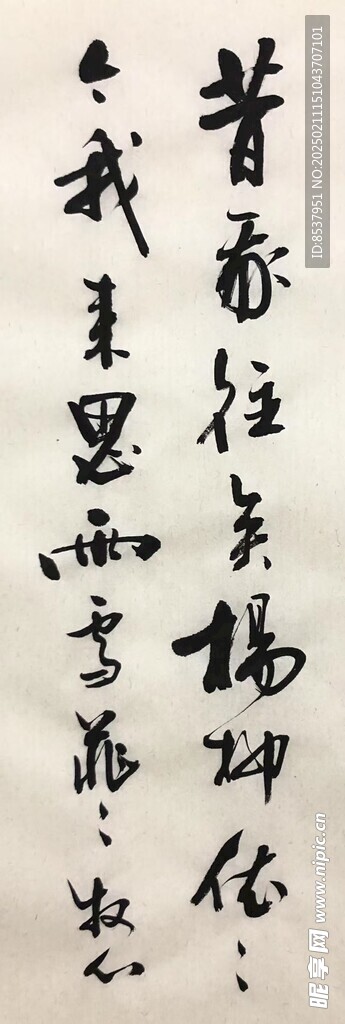 昔我往矣楊柳依〻
今我来思雨雪霏〻牧心
ID:8537951 NO:20250211151043707101
昵享网 www.nipic.cn